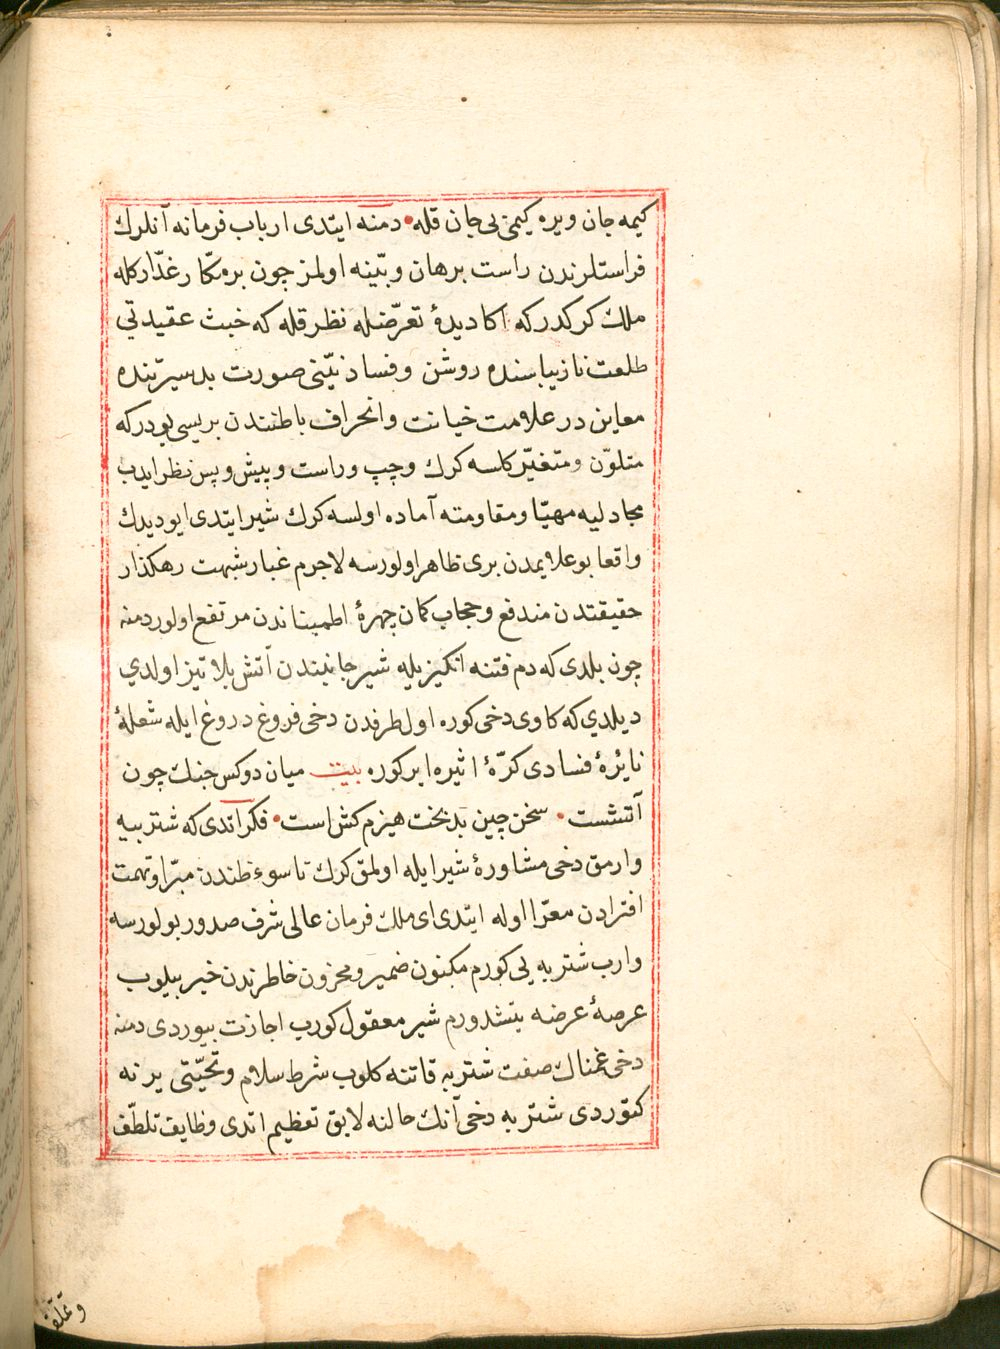 كيمه جان ويره كيمى بى جان قله • دمنه ايتدى ارباب فرمانه آنلرك
فراستلرندن راست برهان و بيّنه اولمز چون بر مكّار غدّار كله
ملك كركدركه اكا ديدهٔ تعرّضله نظر قله كه خبث عقيدتى
طلعت نازيباسنده روشن و فساد نيّتى صورت بد سيرتنده
معاين در علامت خيانت و انحراف باطنتدن بريسى بودركه
متلوّن و متغيّر كلسه كرك و چپ و راست و پيش و پس نظر ايدب
مجادليه مهيّا و مقاومته آماده اولسه كرك شير ايتدى ايو ديدك
واقعا بو علايمدن برى ظاهر اولورسه لاجرم غبار شبهت رهكذار
حقيقتدن مندفع و حجاب كمان چهرهٔ اطميناندن مرتفع اولور دمنه
چون بلدى كه دم فتنه انكيزيله شير جانبندن آتش بلا تيز اولدي
ديلدي كه كاوى دخى كوره اول طرفدن دخى فروغ دروغ ايله شعلهٔ
نايرهٔ فسادى كرّهٔ اثيره ايركوره بيت ميان دو كس جنك چون
آتشست • سخن چين بدبخت هيزم كش است • فكر اتدى كه شتربيه
وارمق دخى مشاورهٔ شير ايله اولمق كرك تا سوء ظندن مبرّا و تهمت
افترادن معرّا اوله ايتدى اى ملك فرمان عالى شرف صدور بولورسه
وارب شتربه يى كورم مكنون ضمير و مخزون خاطرندن خبر بيلوب
عرصهٔ عرضه يتشدورم شير معقول كورب اجازت بيوردى دمنه
دخى غمناك صفت شتربه قاتنه كلوب شرط سلام و تحيّتى يرنه
كتوردى شتربه دخى آنك حالنه لايق تعظيم اتدى وظايف تلطّف
و تملّق